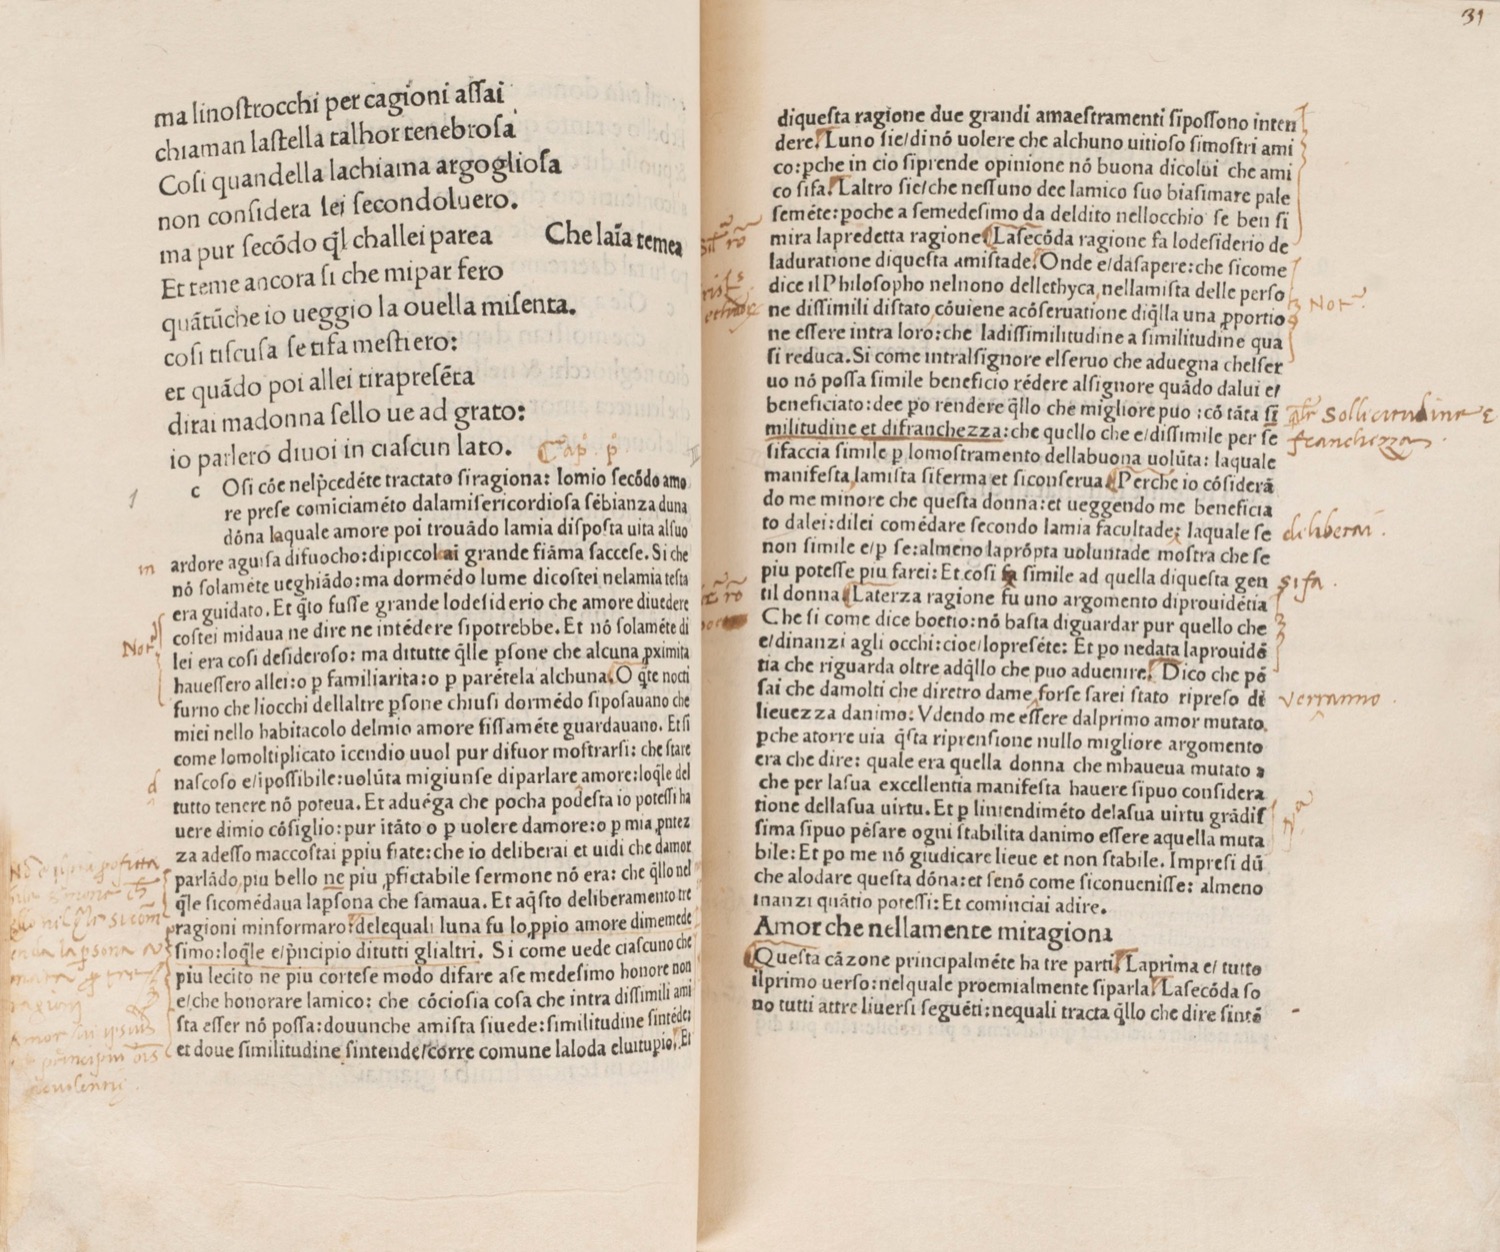 ma linoſtrocchi per cagioni aſſai
chiaman laſtella talhor tenebroſa
Coſi quandella lachiama argoglioſa
non conſidera lei ſecondoluero.
ma pur ſecõdo q̃l challei parea Che laĩa temea
Et teme ancora ſi che mipar fero
quãtũche io ueggio la ouella miſenta.
coſi tiſcuſa ſe tifa meſtiero:
et quãdo poi allei tirapreſẽta
dirai madonna ſello ue ad grato:
io parlerò diuoi in ciaſcun lato.
Cap. p.
1
c Oſi cõe nelp̃cedẽte tractato ſiragiona: lomio ſecõdo amo
re preſe comiciamẽto dalamiſericordioſa ſẽbianza duna
dõna laquale amore poi trouãdo lamia diſpoſta uita alſuo
in
ardore aguiſa difuocho: dipiccol ai grande fiãma ſacceſe. Si che
nõ ſolamẽte ueghiãdo: ma dormẽdo lume dicoſtei nelamia teſta
era guidato. Et q̃to fuſſe grande lodeſiderio che amore diuedere
Not
coſtei midaua ne dire ne intẽdere ſipotrebbe. Et nõ ſolamẽte di
lei era coſi deſideroſo: ma ditutte q̃lle p̱ſone che alcuna p̱ximita
haueſſero allei: o p̱ familiarita: o p̱ parẽtela alchuna. O q̃te nocti
furno che liocchi dellaltre p̱ſone chiuſi dormẽdo ſipoſauano che
miei nello habitacolo delmio amore fiſſamẽte guardauano. Et ſi
come lomoltiplicato ĩcendio uuol pur difuor moſtrarſi: che ſtare
d
naſcoſo e/ĩpoſſibile: uolũta migiunſe diparlare amore: loq̃le del
tutto tenere nõ poteua. Et aduẽga che pocha podeſta io poteſſi ha
uere dimio cõſiglio: pur ĩtãto o p̱ uolere damore: o p̱ mia p̱ntez
za adeſſo maccoſtai p̱piu fiate: che io deliberai et uidi che damor
parlãdo, piu bello ne piu p̱fictabile ſermone nõ era: che q̃llo nel
q̃le ſicomẽdaua lap̱ſona che ſamaua. Et aq̃ſto deliberamento tre
ragioni minformaro: delequali luna fu lo p̱pio amore dimemede
ſimo: loq̃le e/p̃ncipio ditutti glialtri. Si come uede ciaſcuno che
piu lecito ne piu corteſe modo difare aſe medeſimo honore non
e/che honorare lamico: che cõcioſia coſa che intra diſſimili ami
ſta eſſer nõ poſſa: douunche amiſta ſiuede: ſimilitudine ſintẽde:
et doue ſimilitudine ſintende/corre comune laloda eluitupio. Et
31
diqueſta ragione due grandi amaeſtramenti ſipoſſono inten
dere. Luno ſie/di nõ uolere che alchuno uitioſo ſimoſtri ami
co: p̱che in cio ſiprende opinione nõ buona dicolui che ami
co ſifa. Laltro ſie/che neſſuno dee lamico ſuo biaſimare pale
ſemẽte: poche a ſemedeſimo da deldito nellocchio ſe ben ſi
mira lapredetta ragione. Laſecõda ragione fa lodeſiderio de
laduratione diqueſta amiſtade. Onde e/daſapere: che ſicome
dice il Philoſopho nelnono dellethyca, nellamiſta delle perſo
ne diſſimili diſtato, cõuiene acõſeruatione diq̃lla una p̱portio
Not.
ne eſſere intra loro: che ladiſſimilitudine a ſimilitudine qua
ſi reduca. Si come intralſignore elſeruo che aduegna chelſer
uo nõ poſſa ſimile beneficio rẽdere alſignore quãdo dalui e/
beneficiato: dee po rendere q̃llo che migliore puo: cõ tãta ſi
Sollicitudine e
franchezza.
militudine et difranchezza: che quello che e/diſſimile per ſe
ſifaccia ſimile p̱ lomoſtramento dellabuona uolũta: laquale
manifeſta, lamiſta ſiferma et ſiconſerua. Perche io cõſiderã
do me minore che queſta donna: et ueggendo me beneficia
to dalei: dilei comẽdare ſecondo lamia facultade: laquale ſe
deliberai.
non ſimile e/p̱ ſe: almeno laprõpta uoluntade moſtra che ſe
piu poteſſe piu farei: Et coſi fa ſimile ad quella diqueſta gen
si fa.
til donna. Laterza ragione fu uno argomento diprouidẽtia
Che ſi come dice boetio: nõ baſta diguardar pur quello che
e/dinanzi agli occhi: cioe/lopreſẽte: Et po nedata laprouidẽ
tia che riguarda oltre adq̃llo che puo aduenire. Dico che pẽ
ſai che damolti che diretro dame forſe ſarei ſtato ripreſo di
verranno.
lieuezza danimo: Vdendo me eſſere dalprimo amor mutato.
p̱che atorre uia q̃ſta riprenſione nullo migliore argomento
era che dire: quale era quella donna che mhaueua mutato a
che per laſua excellentia manifeſta hauere ſipuo conſidera
tione dellaſua uirtu. Et p̱ lintendimẽto delaſua uirtu grãdiſ
ſima ſipuo pẽſare ogni ſtabilita danimo eſſere aquella muta
bile: Et po me nõ giudicare lieue et non ſtabile. Impreſi dũ
che alodare queſta dõna: et ſenõ come ſiconueniſſe: almeno
inanzi quãtio poteſſi: Et cominciai adire.
Amor che nellamente miragiona
Queſta cãzone principalmẽte ha tre parti. Laprima e/ tutto
ilprimo uerſo: nelquale proemialmente ſiparla. Laſecõda ſo
no tutti attre liuerſi ſeguẽti: nequali tracta q̃llo che dire ſintẽ